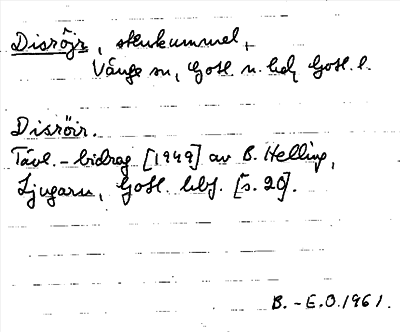 Disröjr, stenkummel,
Vänge sn, Gotl. n. hd, Gotl. l.
Disröir.
Tävl.-bidrag [1949] av B. Helling,
Ljugarn, Gotl. hbf. [s. 20].
B.-E.O. 1961.